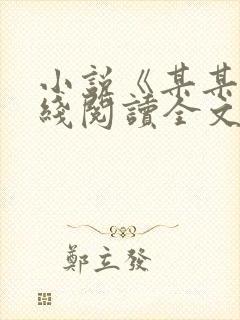 小說《某某
綫閱讀全文
鄭立發